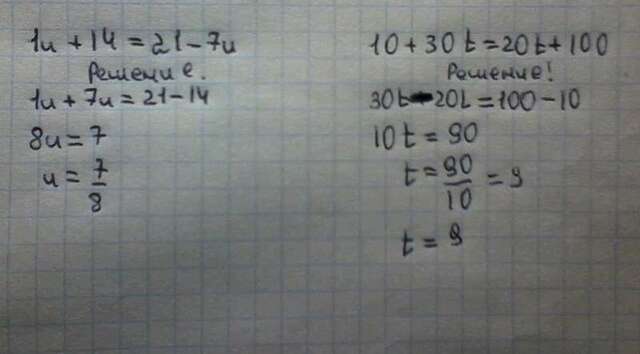 1u + 14 = 21 - 7u
Решение.
1u + 7u = 21 - 14
8u = 7
u = 7/8
10 + 30t = 20t + 100
Решение!
30t - 20t = 100 - 10
10t = 90
t = 90/10 = 9
t = 9